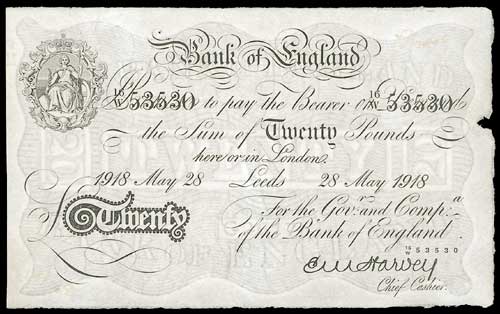 Bank of England
16 53530 to pay the Bearer on 16 53530
the Sum of Twenty Pounds
here or in London.
1918 May 28 Leeds 28 May 1918
For the Gov.r and Comp.a
Twenty of the Bank of England
16 53530
E M Harvey
Chief Cashier.